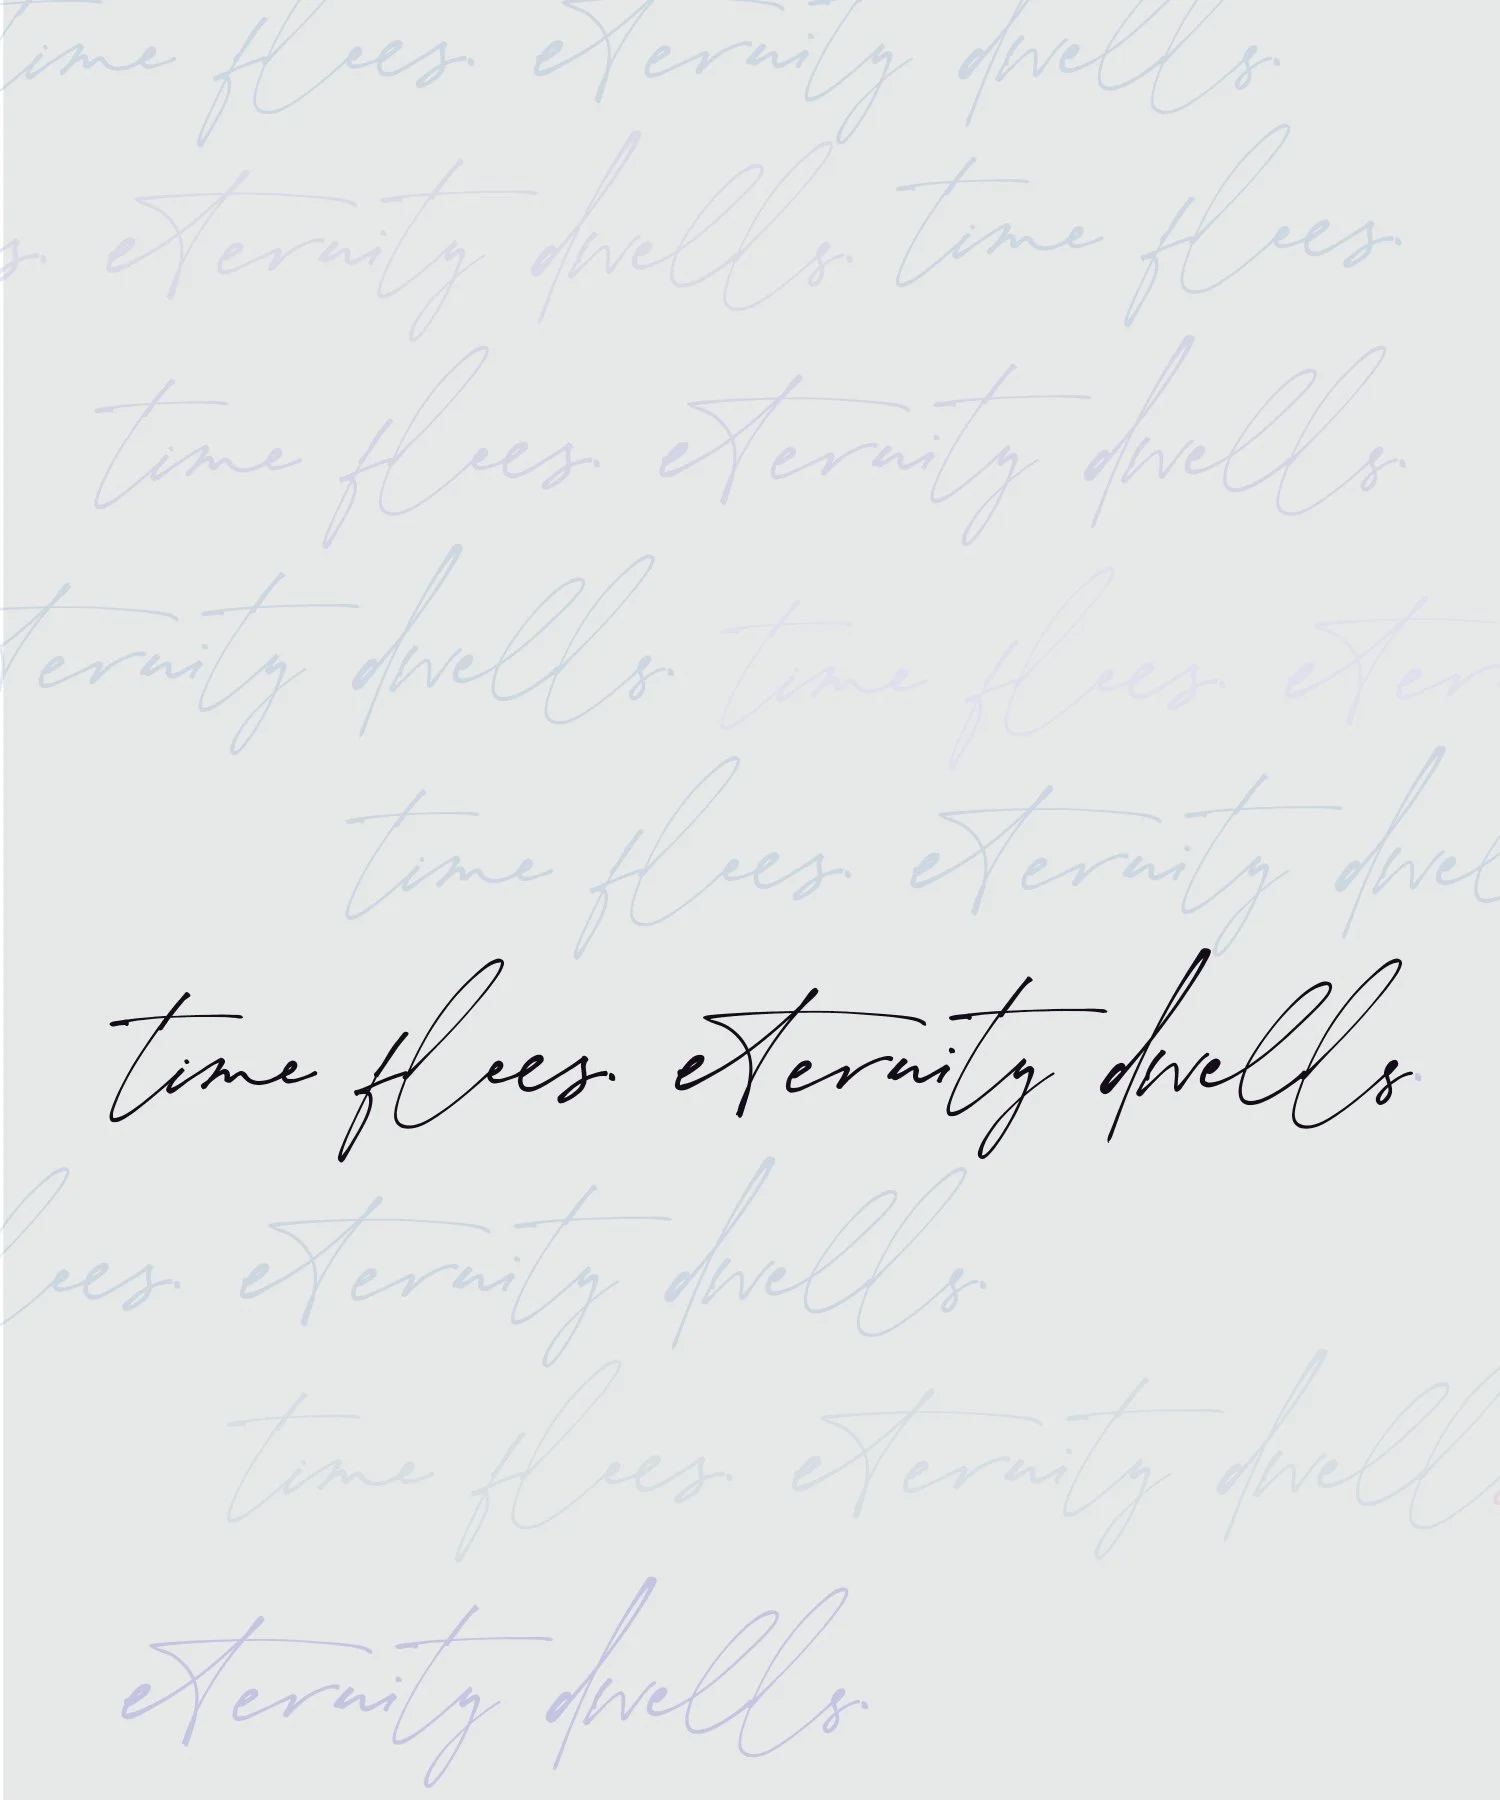 time flees. eternity dwells.
s. eternity dwells. time flees.
time flees. eternity dwells.
ternity dwells. time flees. eter
time flees. eternity dwel
time flees. eternity dwells.
lees. eternity dwells.
time flees. eternity dwells
eternity dwells.